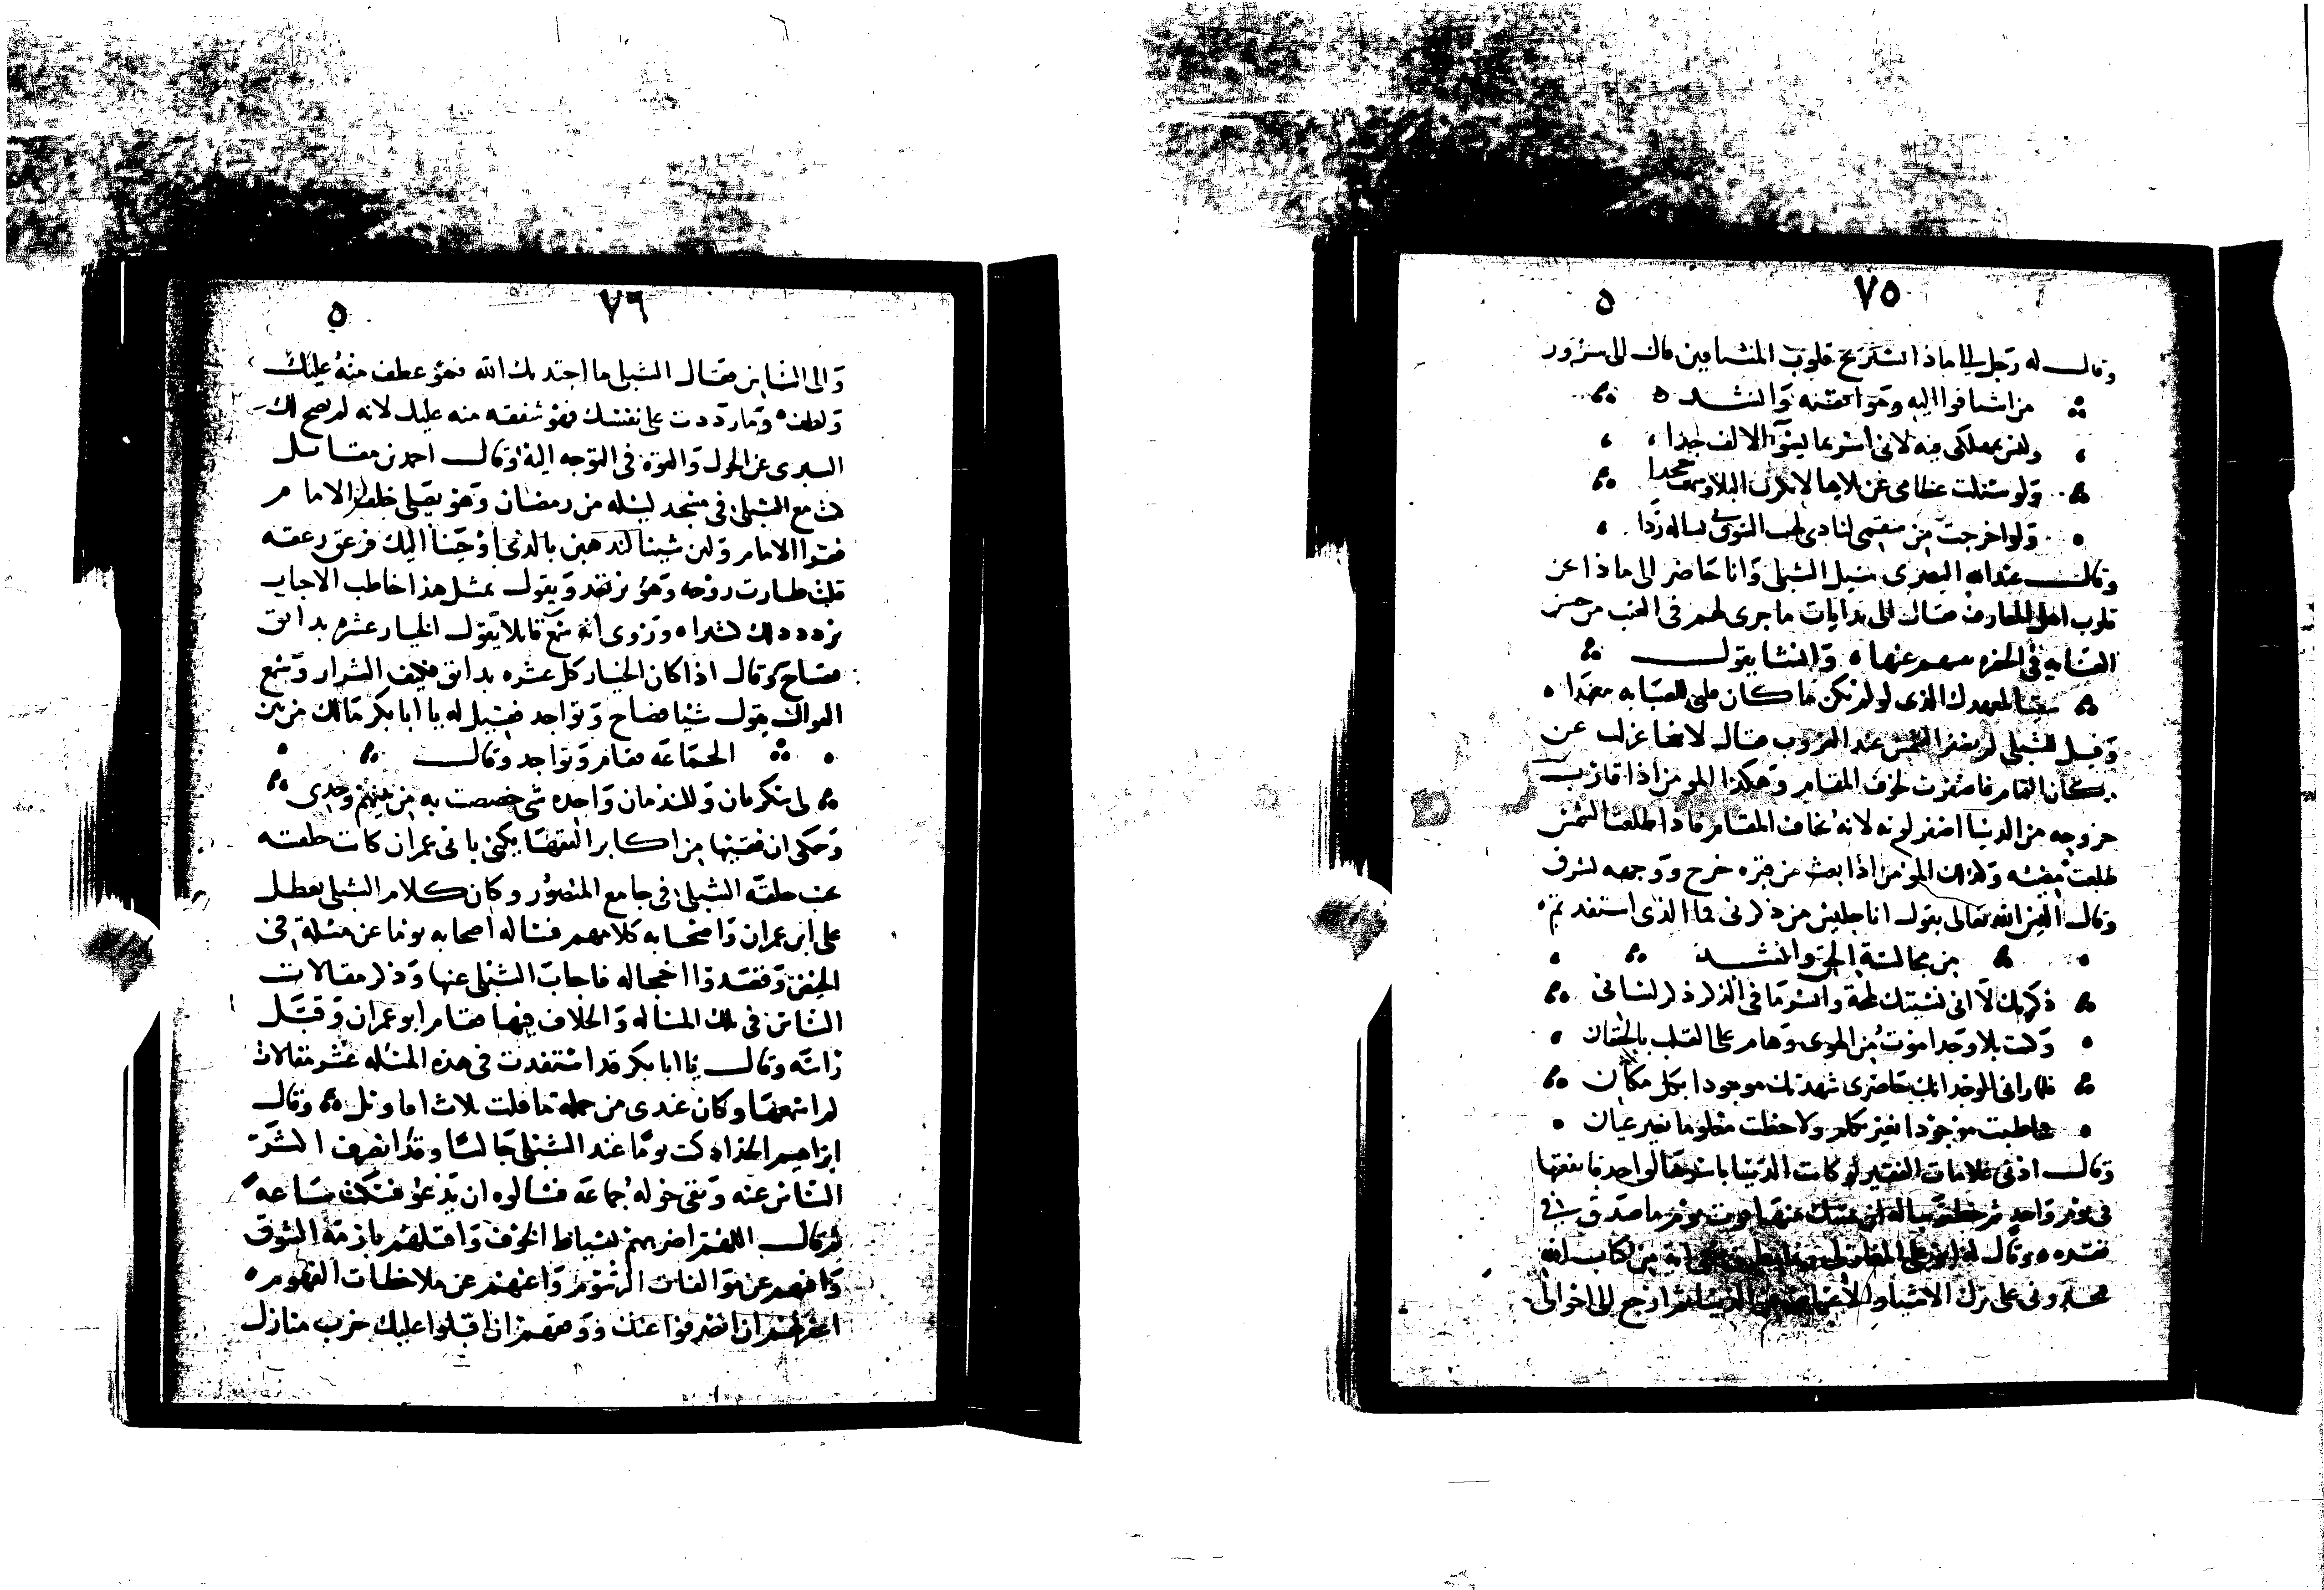 ٧٥
٥
وقال له رجل الى ماذا تستريح قلوب المشتاقين قال الى سرور
من اشتاقوا اليه وموافقته وانشد
ولو سئلت عظامي عن بلاها لانكرت البلا
ولو اخرجت من سقمي لنادى لهيب الشوق بي يساله ردا
وقال عبد الله البصري سئل الشبلي وانا حاضر الى ماذا تحن
قلوب اهل المعارف فقال الى بدايات ما جرى لهم في الغيب من حسن
العناية في الحضرة عنها وانشا يقول
سقيا لمعهدك الذي لو لم يكن ما كان قلبي للصبابه معهدا
وقيل للشبلي لم تصفر الشمس عند الغروب فقال لانها عزلت عن
مكان التمام فاصفرت لخوف المقام وهكذا المومن اذا قارب
خروجه من الدنيا اصفر لونه لانه يخاف المقام فاذا طلعت الشمس
طلعت مضيئه وكذلك المؤمن اذا بعث من قبره خرج ووجهه يشرق
وقال اليس الله تعالى يقول انا جليس من ذكرني فما الذي استفدتم
من مجالسة الحق وانشد
ذكرتك لا اني نسيتك لمحة وايسر ما في الذكر ذكر لساني
وكدت بلا وجد اموت من الهوى وهام على القلب بالخفقان
فلما راني الوجد انك حاضري شهدتك موجودا بكل مكان
فخاطبت موجودا بغير تكلم ولاحظت معلوما بغير عيان
وقال ادنى علامات الفقير لو كانت الدنيا باسرها لواحد فانفقها
في يوم واحد ثم خطر بباله ان يمسك منها قوت يوم ما صدق في
فقره وقال من كتاب الله
على ترك الاشياء والاعراض عن الدنيا ثم ارجع الى احوالي
٧٦
٥
والى الناس فقال الشبلي ما اجتذبك الله فهو عطف منه عليك
ولطف وما رددت على نفسك فهو شفقه منه عليك لانه لم يصح لك
التبرى عن الحول والقوة في التوجه اليه وقال احمد بن مقاتل
كنت مع الشبلي في مسجد ليله من رمضان وهو يصلي خلف الامام
فقرا الامام ولئن شينا لنذهبن بالذي اوحينا اليك فزعق زعقه
قلت طارت روحه وهو يرتعد ويقول بمثل هذا خاطب الاحباب
يردد ذلك كثيرا وروى انه سمع قايلا يقول الخيار عشره بدانق
فصاح وقال اذا كان الخيار كل عشره بدانق فكيف الشرار وسمع
القوال يقول شيا فصاح وتواجد فقيل له يا ابا بكر مالك من بين
الجماعه فقام وتواجد وقال
لي سكرتان وللندمان واحده شي خصصت به من بينهم وحدي
وحكى ان فقيها من اكابر الفقها يكنى بابي عمران كانت حلقته
بجنب حلقه الشبلي في جامع المنصور وكان كلام الشبلي يعطل
على ابي عمران واصحابه كلامهم فساله اصحابه يوما عن مسئلة في
الحيض وقصدوا اخجاله فاجاب الشبلي عنها وذكر مقالات
الناس في تلك المساله والخلاف فيها فقام ابو عمران وقبل
راسه وقال يا ابا بكر قد استفدت في هذه المساله عشر مقالات
لم اسمعها وكان عندي من جمله ما قلت ثلاث اقاويل وقال
ابراهيم الحداد كنت يوما عند الشبلي جالسا وقد انصرف اكثر
الناس عنه وبقى حوله جماعه فسالوه ان يدعو فسكت ساعه
ثم قال اللهم اضربهم بسياط الخوف واقتلهم بازمة الشوق
وافنهم عن موالفات الرسوم واغنهم عن ملاحظات الفهوم
اغفر لهم ان انصرفوا عنك ووفقهم ان اقبلوا عليك خرب منازل